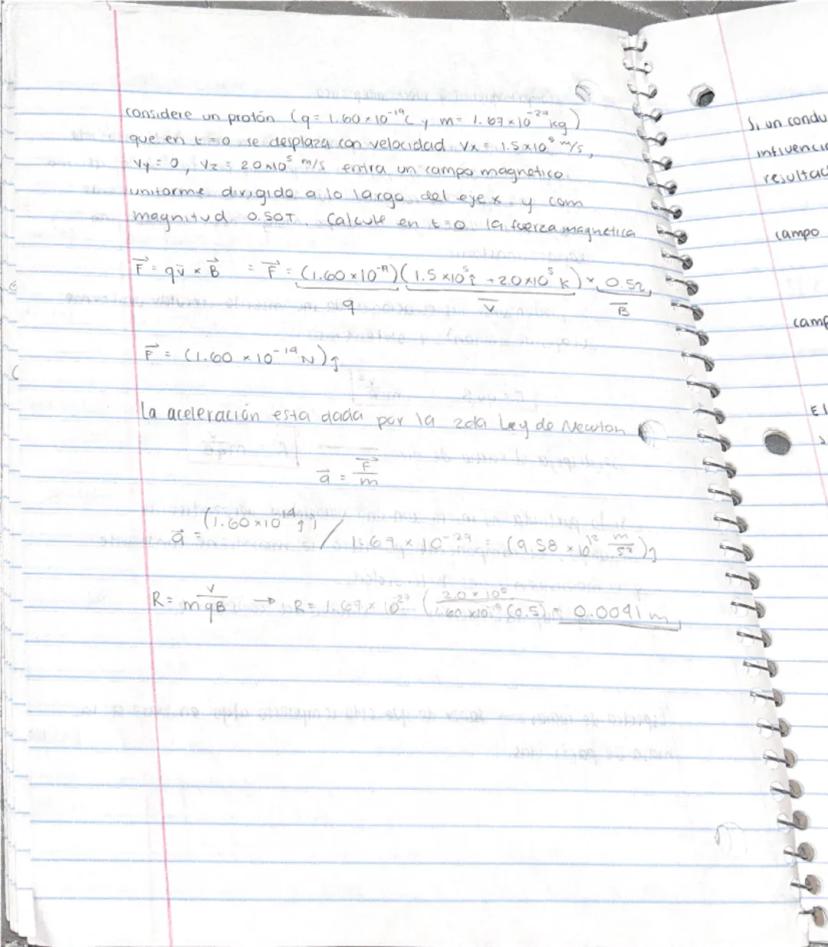 considere un protón (q = 1.60×10⁻¹⁹C y m = 1.67×10⁻²⁷ kg)
que en t=0 se desplaza con velocidad Vx = 1.5×10⁵ m/s,
Vy = 0, Vz = 2.0×10⁵ m/s entra un campo magnetico
uniforme dirigido a lo largo del eje x y com
magnitud 0.50T. Calcule en t=0 la fuerza magnetica
F = qv × B = F = (1.60×10⁻¹⁹)(1.5×10⁵ î + 2.0×10⁵ k) × 0.5î
q V B
F = (1.60×10⁻¹⁴ N) ĵ
La aceleración esta dada por la 2da Ley de Newton
a = F/m
a = (1.60×10⁻¹⁴ ĵ) / 1.67×10⁻²⁷ = (9.58×10¹² m/s²) ĵ
R = m v/qB → R = 1.67×10⁻²⁷ (2.0×10⁵ / 1.60×10⁻¹⁹ (0.5)) = 0.0041 m
Si un condu
influenci
resultad
campo
camp
El